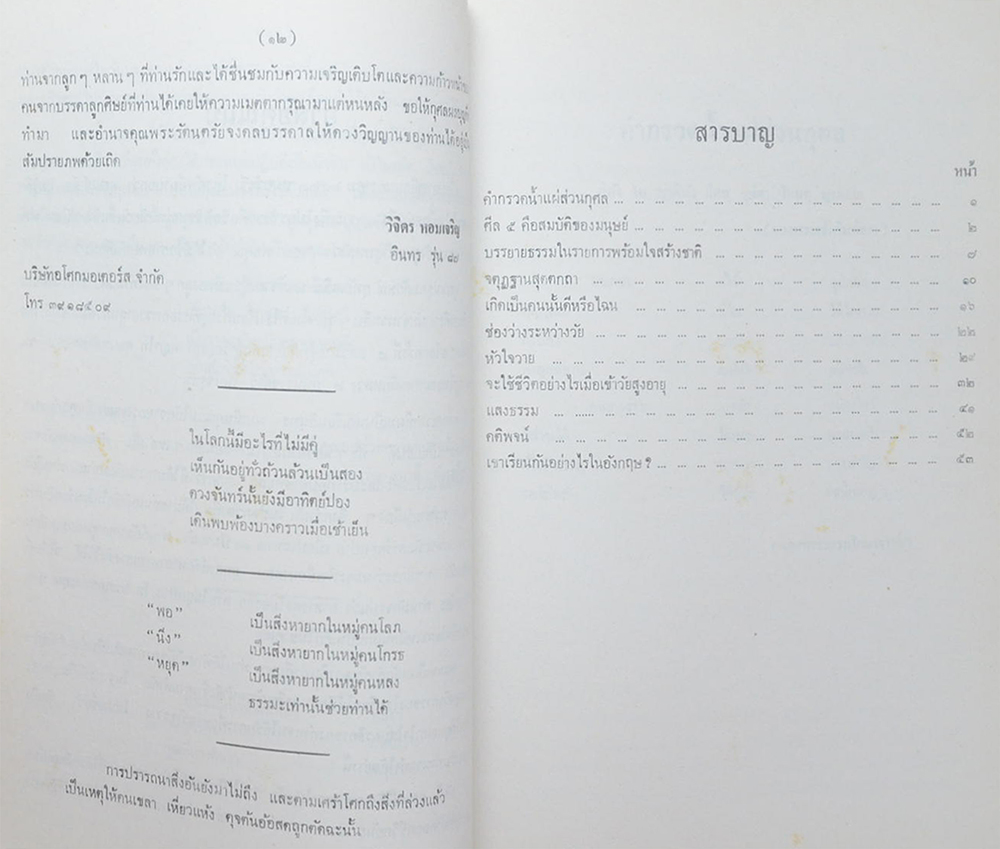 (๑๒)
ท่านจากลูกๆ หลานๆ ที่ท่านรักและได้ชื่นชมกับความเจริญเติบโตและความก้าวหน้าของ
คนจากบรรดาลูกศิษย์ที่ท่านได้เคยให้ความเมตตากรุณามาแต่หนหลัง ขอให้กุศลผลบุญที่
ทำมา และอำนาจคุณพระรัตนตรัยจงดลบรรดาลให้ดวงวิญญานของท่านได้อยู่ใน
สัมปรายภพด้วยเถิด
วิจิตร หอมเจริญ
อินทร รุ่น ๘๗
บริษัทอโศกมอเตอร์ส จำกัด
โทร ๓๙๑๘๕๐๙
ในโลกนี้มีอะไรที่ไม่มีคู่
เห็นกันอยู่ทั่วถ้วนล้วนเป็นสอง
ดวงจันทร์นั้นยังมีอาทิตย์ปอง
เดินพบพ้องบางคราวเมื่อเช้าเย็น
“พอ” เป็นสิ่งหายากในหมู่คนโลภ
“นิ่ง” เป็นสิ่งหายากในหมู่คนโกรธ
“หยุด” เป็นสิ่งหายากในหมู่คนหลง
ธรรมะเท่านั้นช่วยท่านได้
การปรารถนาสิ่งอันยังมาไม่ถึง และตามเศร้าโศกถึงสิ่งที่ล่วงแล้ว
เป็นเหตุให้คนเขลา เหี่ยวแห้ง ดุจต้นอ้อสดถูกตัดฉะนั้น
สารบาญ
หน้า
คำกรวดน้ำแผ่ส่วนกุศล ... ๑
ศีล ๕ คือสมบัติของมนุษย์ ... ๒
บรรยายธรรมในรายการพร้อมใจสร้างชาติ ... ๗
จตุฏฐานสุตตกถา ... ๑๐
เกิดเป็นคนนั้นดีหรือไฉน ... ๑๖
ช่องว่างระหว่างวัย ... ๒๒
หัวใจวาย ... ๒๙
จะใช้ชีวิตอย่างไรเมื่อเข้าวัยสูงอายุ ... ๓๒
แสงธรรม ... ๔๑
คติพจน์ ... ๕๒
เขาเรียนกันอย่างไรในอังกฤษ? ... ๕๓